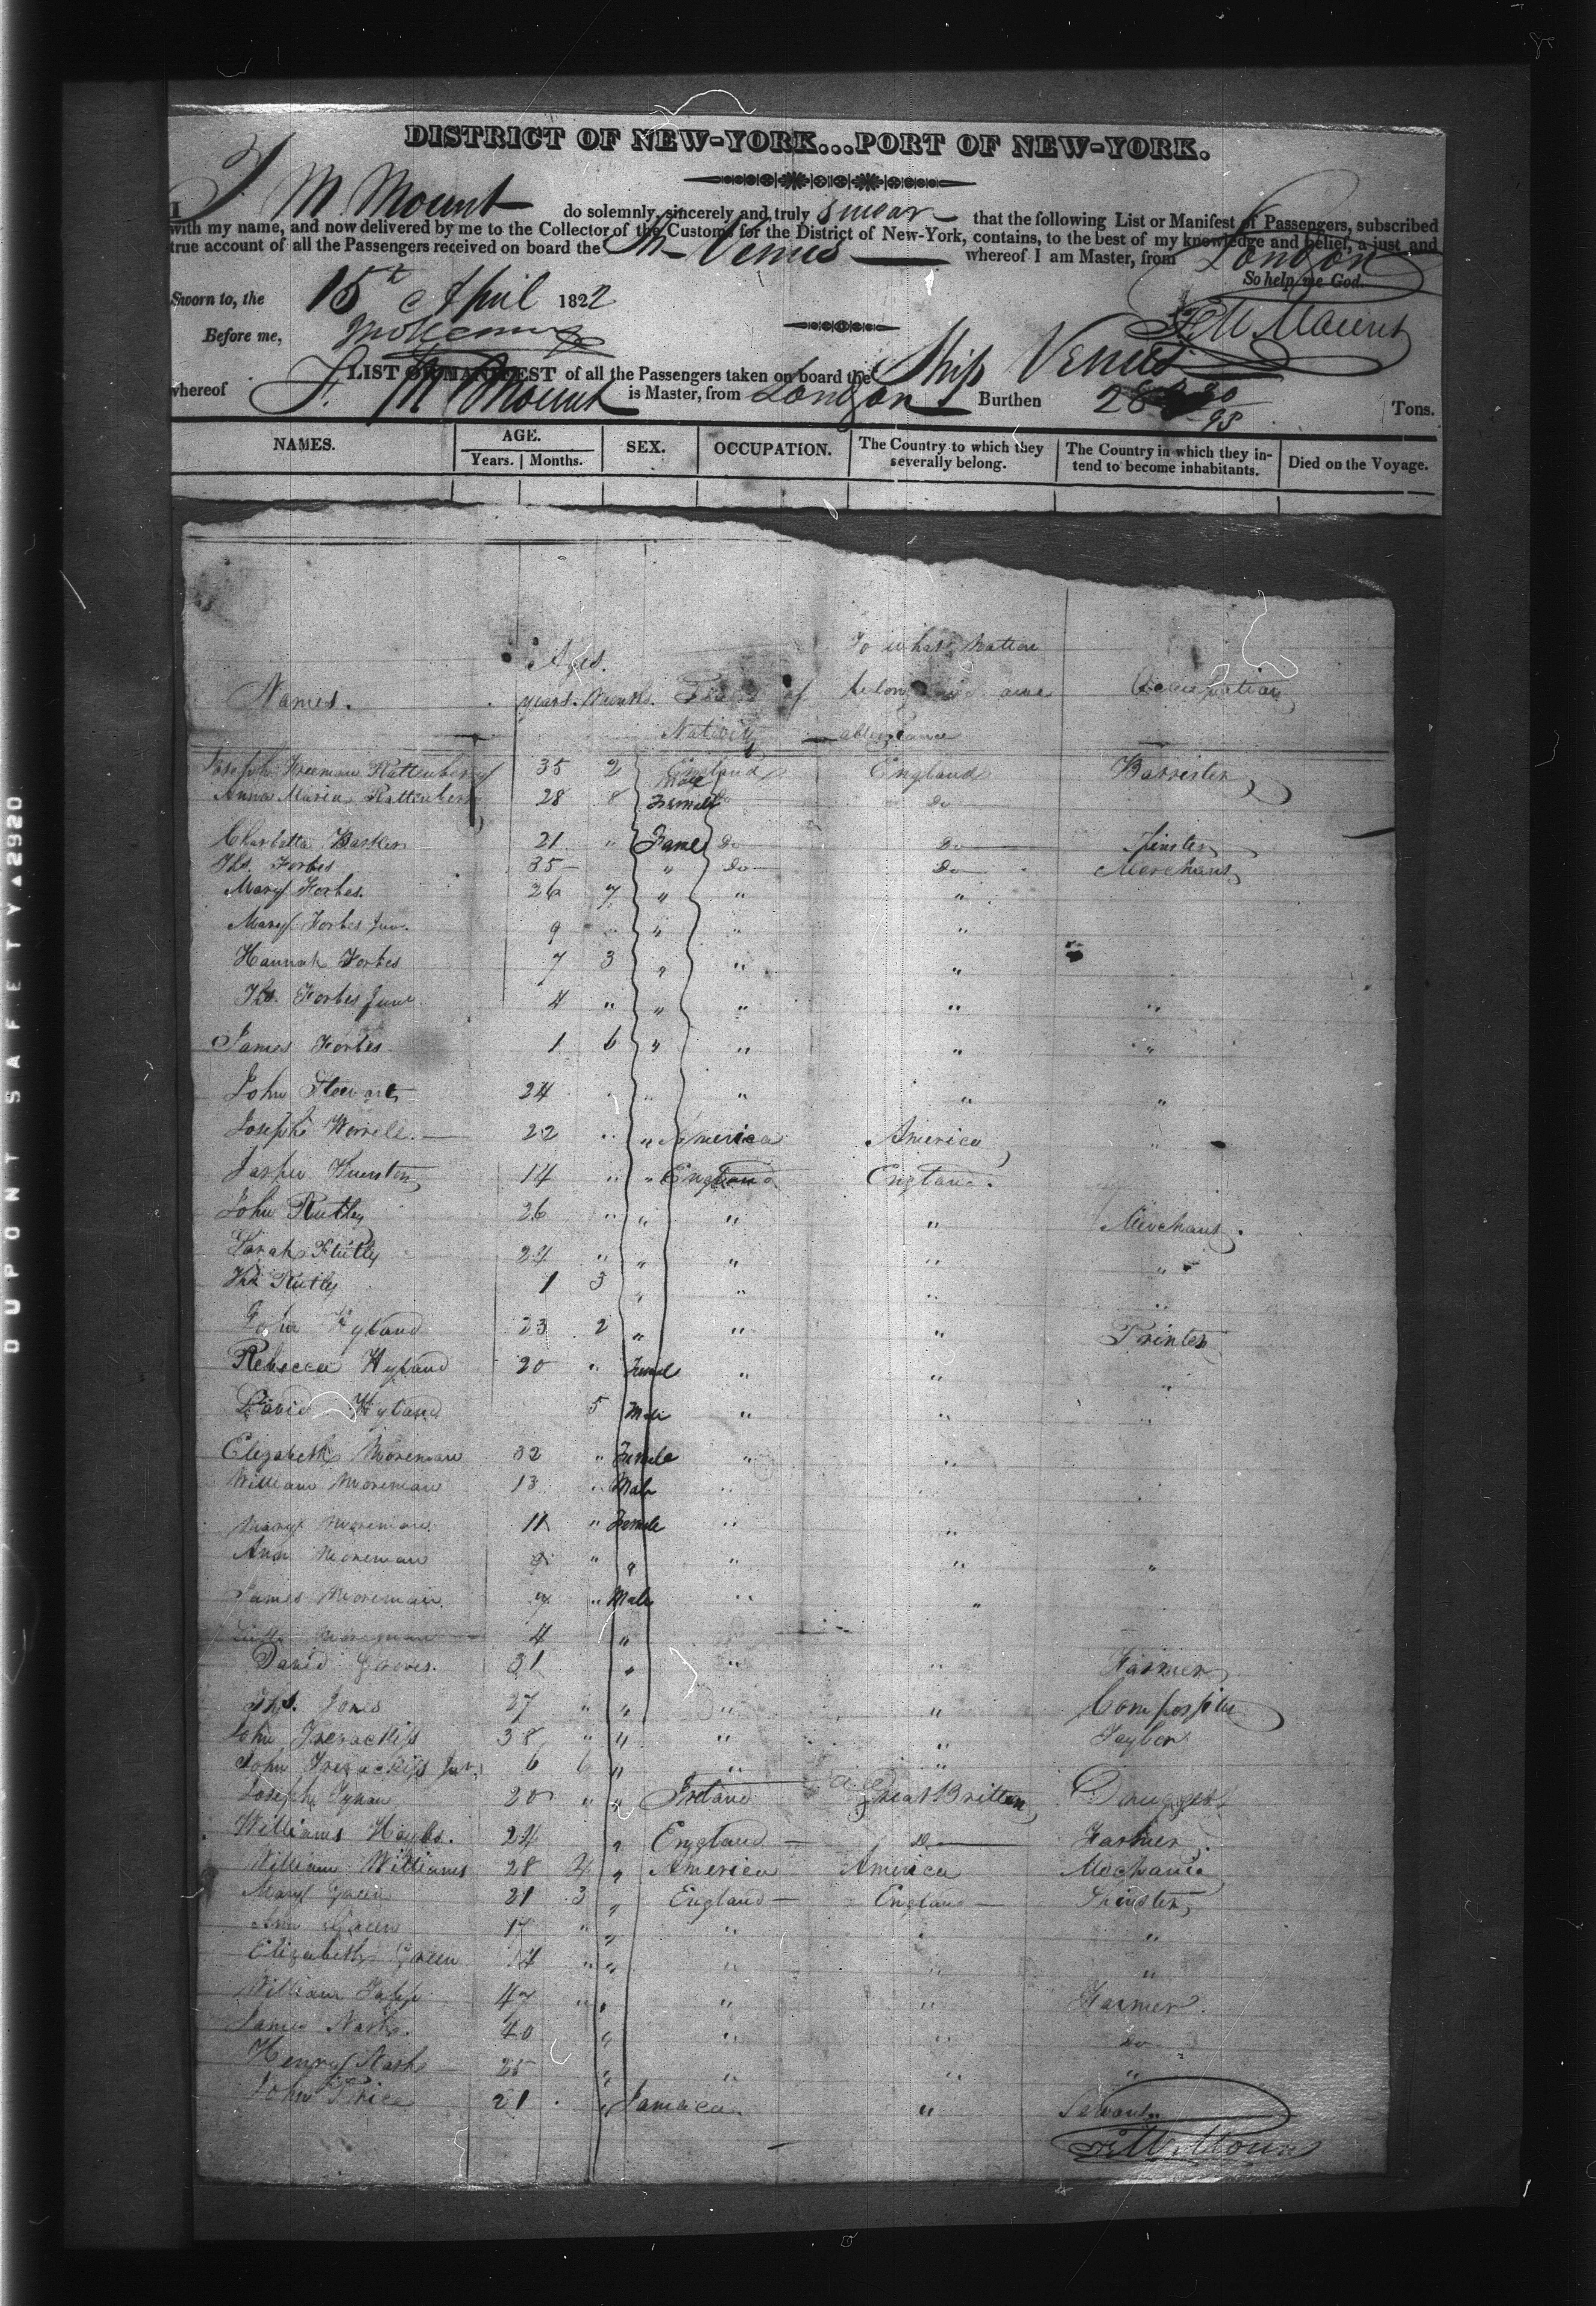 DISTRICT OF NEW-YORK...PORT OF NEW-YORK.
I M Mount do solemnly, sincerely and truly swear that the following List or Manifest of Passengers, subscribed
with my name, and now delivered by me to the Collector of the Customs for the District of New-York, contains, to the best of my knowledge and belief, a just and
true account of all the Passengers received on board the Venus whereof I am Master, from London
So help me God.
Sworn to, the 15th April 1822
Mount
Before me,
LIST OR MANIFEST of all the Passengers taken on board the Ship Venus
whereof M Mount is Master, from London Burthen Tons.
NAMES. AGE. SEX. OCCUPATION. The Country to which they severally belong. The Country in which they intend to become inhabitants. Died on the Voyage.
Years. Months.
To what Nation
Ages.
Names. years. Months. of belong Occupation
Nativity
Joseph Freeman Rattenberry 35 2 Male England England Barrister
Anna Maria Rattenberry 28 8 Female Do Do
Charlotta Barker 21 " Fame Do Do
Ths. Forbes 35 " Do Do Merchant
Mary Forbes. 26 7 " " "
Mary Forbes Junr. 9 " " " "
Hannah Forbes 7 3 " " "
Ths. Forbes Junr. 4 " " " " "
James Forbes 1 6 " " " "
John Stewart 24 " " " "
Joseph Worrell 22 " " America America
14 " " England England.
John Rutley 26 " " " " Merchant.
Sarah Rutly 24 " " " " "
Ths Rutly 1 3 " " " "
John Hyland 23 2 " " " Printer
Rebecca Hyland 20 " Femal " " "
David Hyland 5 Male " " "
Elizabeth Moreman 32 " Female " "
William Moreman 13 " Male "
Mary Moreman 11 " Female " "
Ann Moreman 9 " " " " "
James Moreman. 7 " Male " "
Moreman 4 "
David Groves. 31 " " " Farmer
Ths. Jones 27 " " " "
John 38 " " " " Taylor
John Junr. 6 6 " " "
Joseph 20 " " Ireland Great Britten
Williams 24 " England Do Farmer
William Williams 28 4 " America America Mechanic
Mary Green 21 3 " England England Spinster
Ann Green 17 " " " "
Elizabeth Green 14 " " " " "
William 47 " " " " Farmer.
James Nash. 40 " " " Do
Henry Nash 25 " " " "
John Price 21 " Jamaca. " Servant
Mount
DUPONT SAFETY ▲ 2920